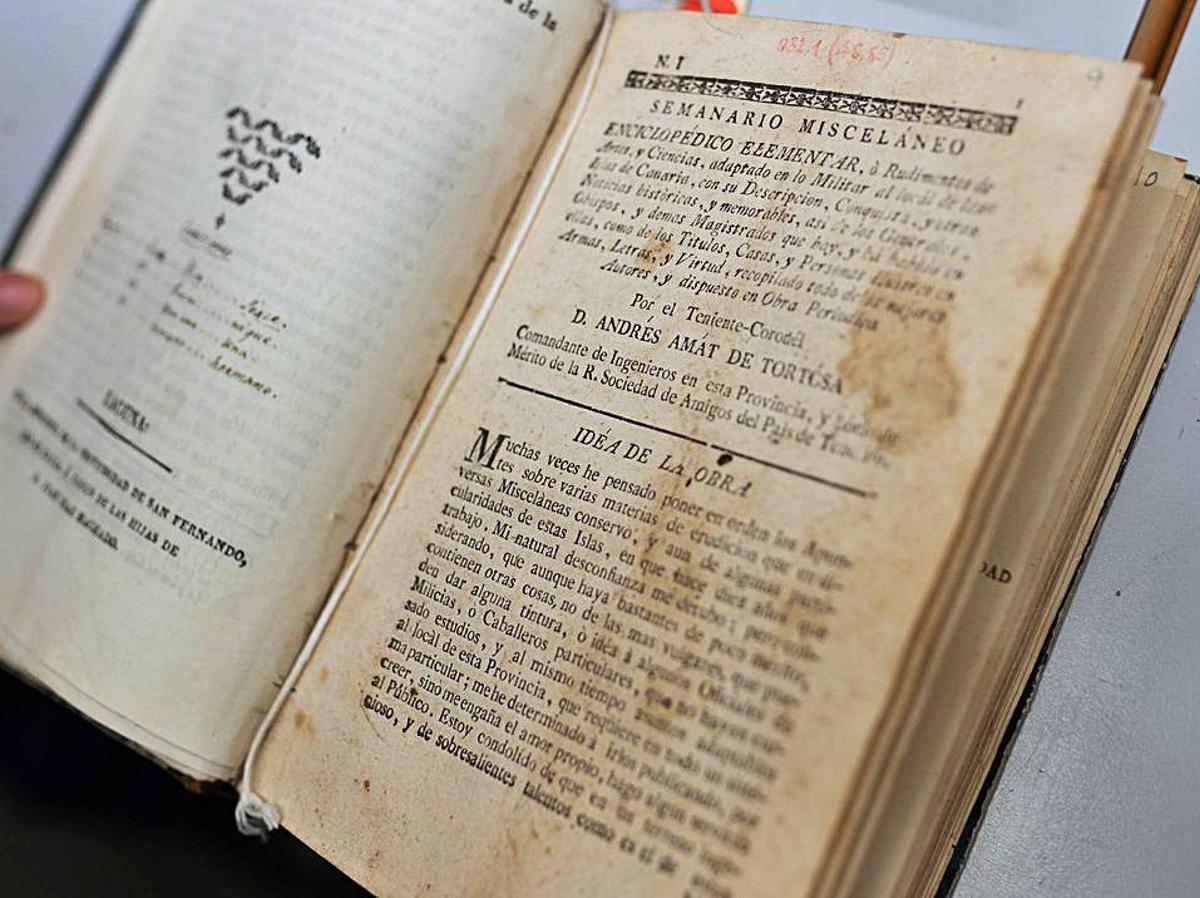 a de la
LAGUNA:
DE SAN FERNANDO,
DE LAS HIJAS DE
Hermano.
N. I
1
9
SEMANARIO MISCELÁNEO
ENCICLOPÉDICO ELEMENTAR, ò Rudimentos de
Artes, y Ciencias, adaptado en lo Militar al local de
Islas de Canaria, con su Descripcion, Conquista, y otras
Noticias históricas, y memorables, así de los Generales,
Obispos, y demas Magistrados que hay, y há habido en
ellas, como de los Titulos, Casas, y Personas ilustres en
Armas, Letras, y Virtud, recopilado todo de los mejores
Autores, y dispuesto en Obra Periodica
Por el Teniente-Coronél
D. ANDRÉS AMÁT DE TORTÓSA
Comandante de Ingenieros en esta Provincia, y
Mérito de la R. Sociedad de Amigos del País de
IDÉA DE LA OBRA
Muchas veces he pensado poner en orden los Apun-
tes sobre varias materias de erudicion que en di-
versas Misceláneas conservo, y aun de algunas parti-
cularidades de estas Islas, en que hace diez años que
trabajo. Mi natural desconfianza me detubo; pero con-
siderando, que aunque haya bastantes de poco merito,
contienen otras cosas, no de las mas vulgares, que pue-
den dar alguna tintura, ò idéa à algunos Oficiales de
Milicias, ò Caballeros particulares, que no hayan cur-
sado estudios, y al mismo tiempo asuntos adaptables
al locâl de esta Provincia, que requiere en todo un siste-
ma particular; me he determinado à irlos publicando, por
creer, sino me engaña el amor propio, hago algun servicio
al Público. Estoy condolido de que en un terreno
cioso, y de sobresalientes talentos como es el de
10
DAD